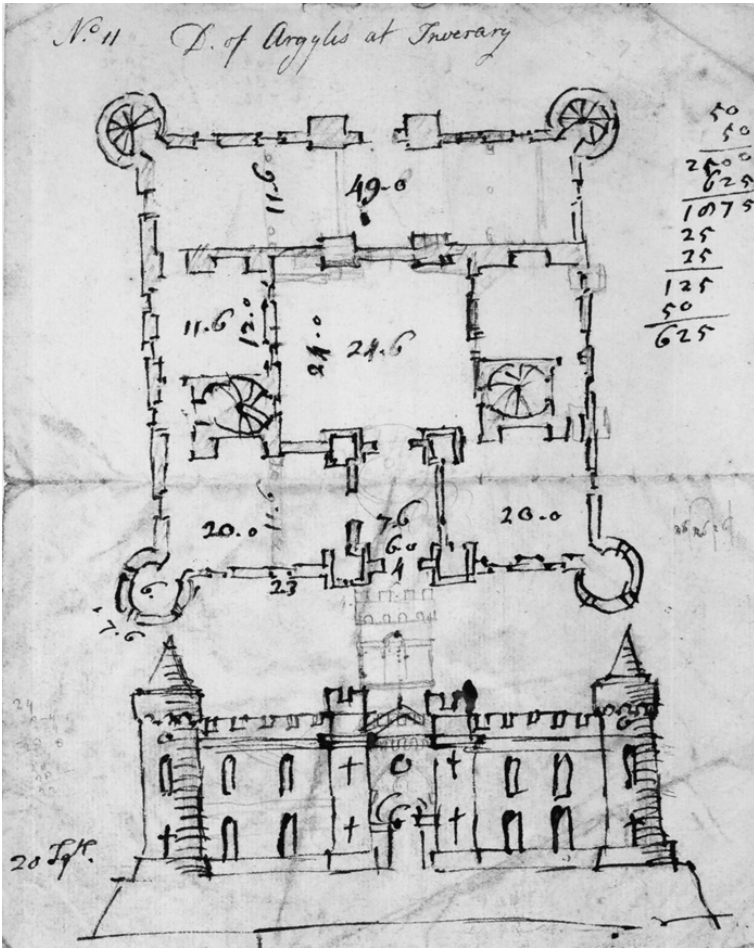 No. 11 D. of Argyles at Inverary
50
50
2500
625
1875
25
25
125
50
625
11.6
49.0
11.6
12.0
24.0
24.6
11.6
20.0
7.6
6.0
4
20.0
23
7.6